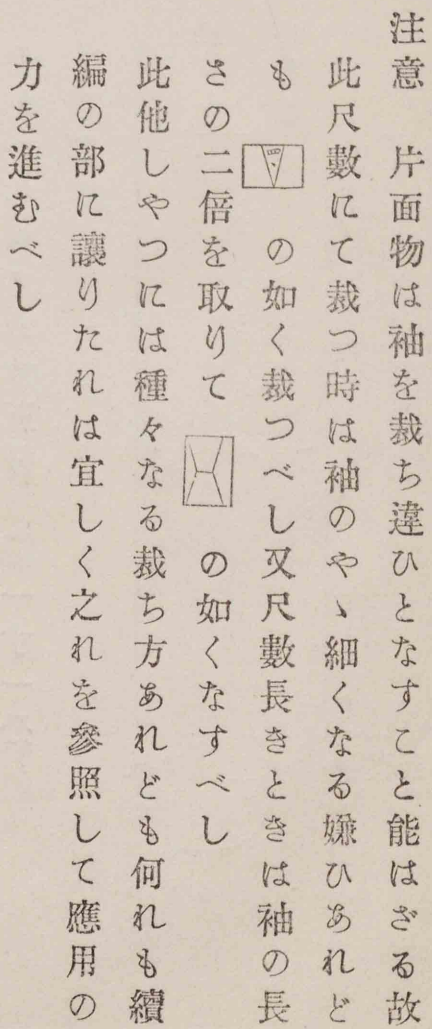 注意　片面物は袖を裁ち違ひとなすこと能はざる故
此尺數にて裁つ時は袖のやゝ細くなる嫌ひあれど
も　の如く裁つべし又尺數長きときは袖の長
さの二倍を取りて　の如くなすべし
此他しやつには種々なる裁ち方あれども何れも續
編の部に讓りたれは宜しく之れを參照して應用の
力を進むべし